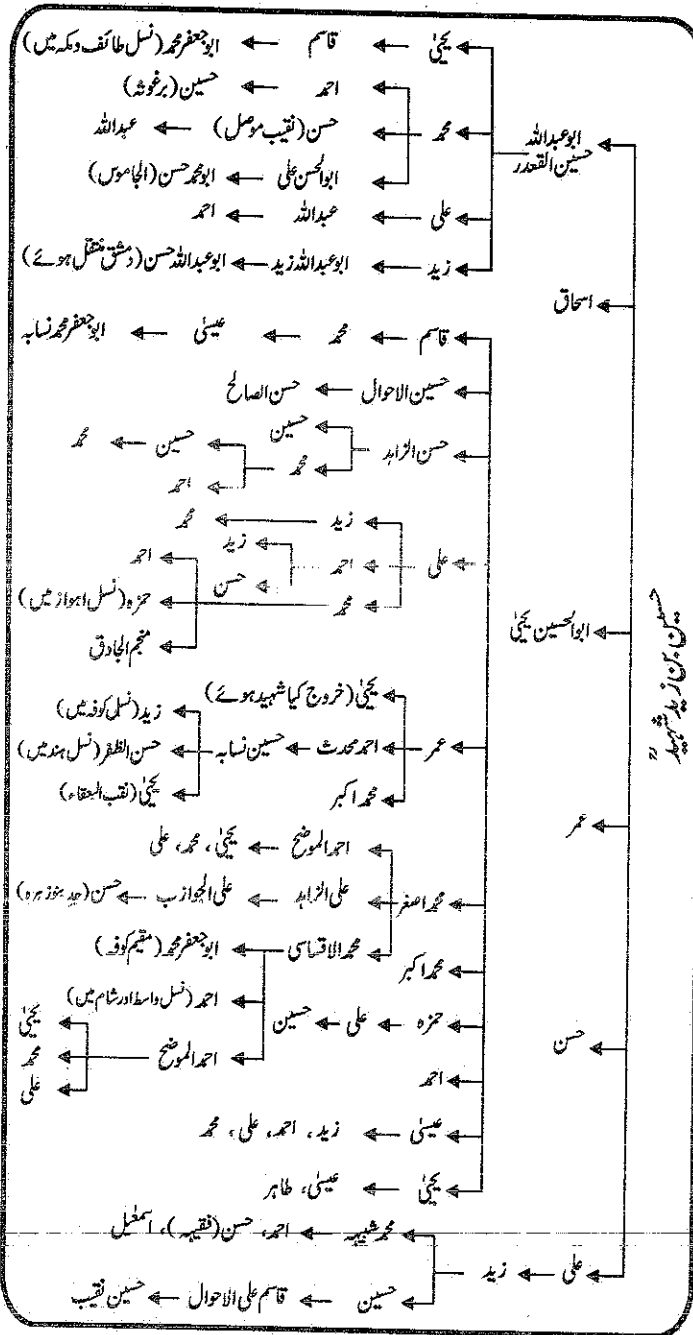 حسین ابن زید شہیدؒ
ابوعبداللہ حسین القعدد
یحیٰی ← قاسم ← ابوجعفر محمد (نسل طائف ومکہ میں)
محمد
احمد ← حسین (برغوثہ)
حسن (نقیب موصل) ← عبداللہ
ابوالحسن علی ← ابومحمد حسن (الجاموس)
علی ← عبداللہ ← احمد
زید ← ابوعبداللہ زید ← ابوعبداللہ حسن (دمشق منتقل ہوئے)
اسحاق
ابوالحسین یحیٰی
قاسم ← محمد ← عیسیٰ ← ابوجعفر محمد نسابہ
حسین الاحوال ← حسن الصالح
حسن الزاہد
حسین
محمد
حسین ← محمد
احمد
علی
زید ← محمد
احمد
زید
حسن
محمد
احمد
حمزہ (نسل اہواز میں)
منجم الحاذق
عمر
یحیٰی (خروج کیا شہید ہوئے)
احمد محدث ← حسین نسابہ
زید (نسل کوفہ میں)
حسن الظفر (نسل ہند میں)
یحیٰی (نقب العقاء)
محمد اکبر
محمد اصغر
احمد الموضح ← یحیٰی، محمد، علی
علی الزاہد ← علی الجوازب ← حسن (جد بنوزہرہ)
محمد الاقساسی
ابوجعفر محمد (مقیم کوفہ)
احمد (نسل واسط اور شام میں)
احمد الموضح
یحیٰی
محمد
علی
محمد اکبر
حمزہ ← علی ← حسین
احمد
عیسیٰ ← زید، احمد، علی، محمد
یحیٰی ← عیسیٰ، طاہر
عمر
حسن
علی ← زید
محمد شبیہ ← احمد، حسن (فقیہہ)، اسمٰعیل
حسین ← قاسم علی الاحوال ← حسین نقیب